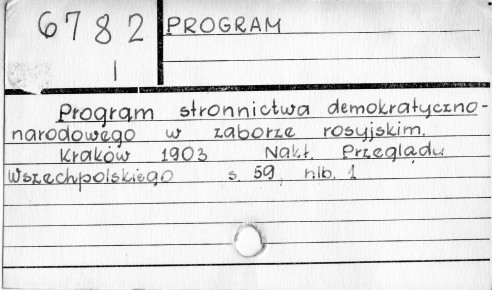 6782
I
PROGRAM
Program stronnictwa demokratyczno-
narodowego w zaborze rosyjskim.
Kraków 1903 Nakł. Przeglądu
Wszechpolskiego s. 59, nlb. 1